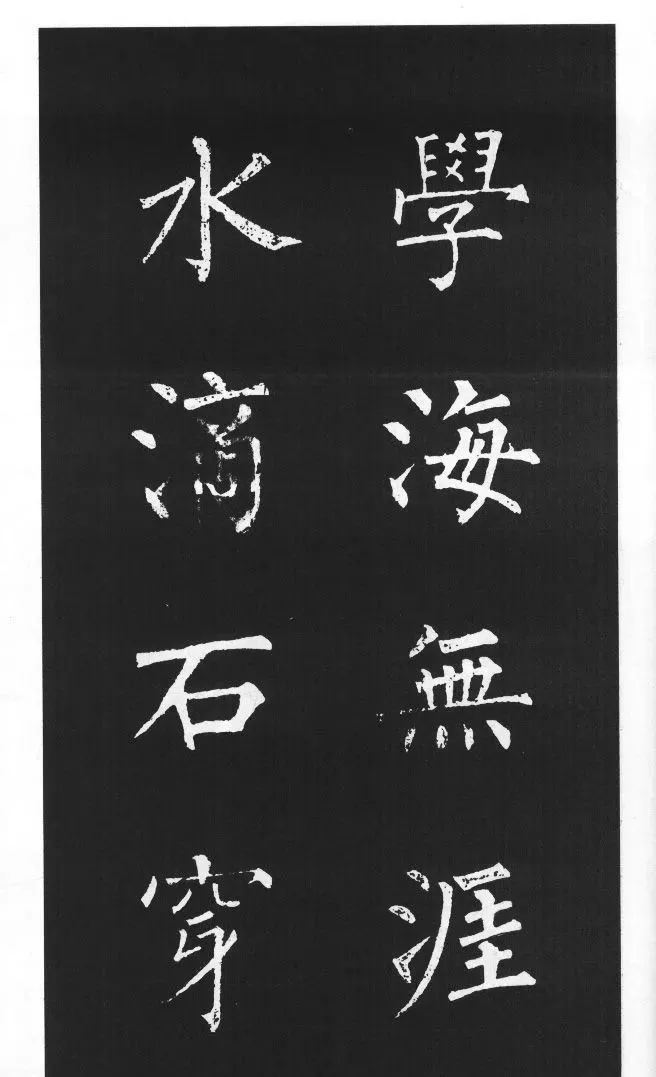 學海無涯
水滴石穿